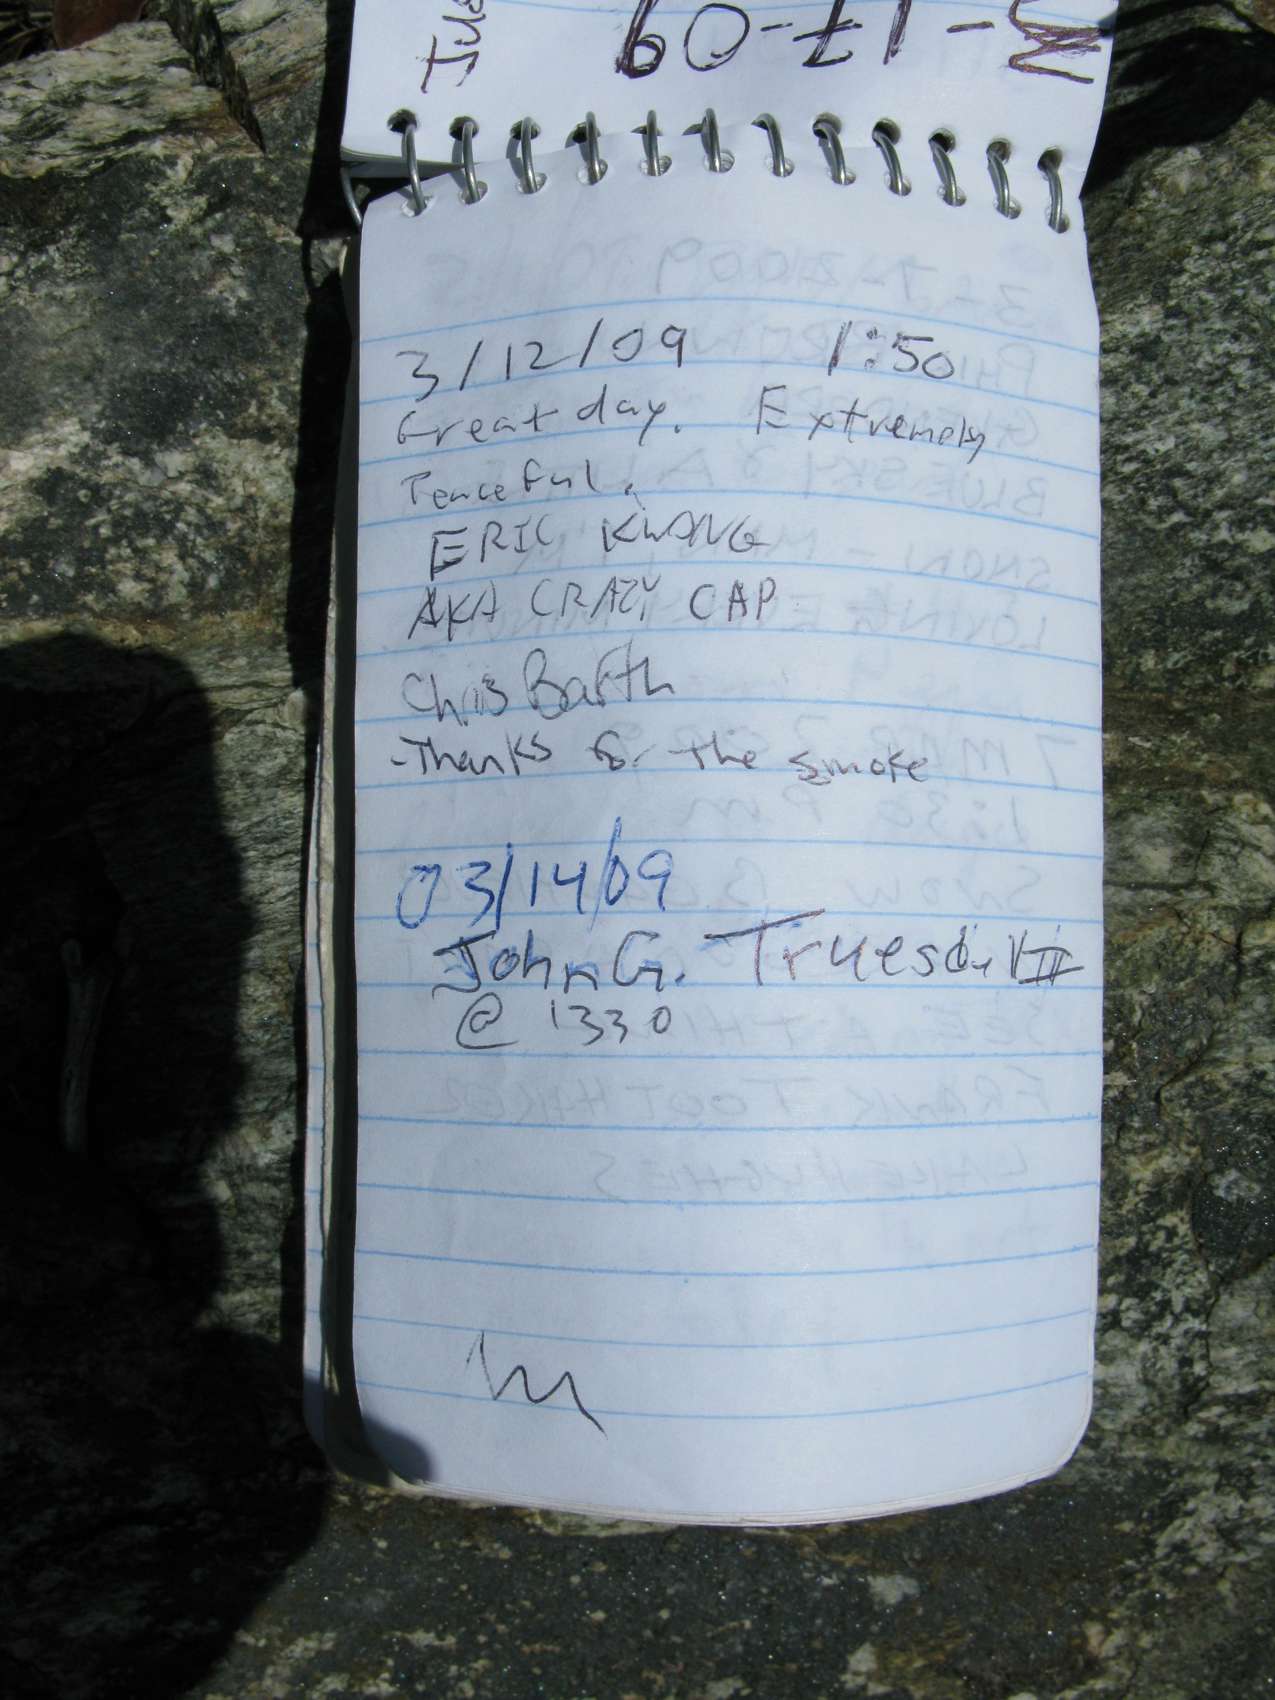 3/12/09 1:50
Great day. Extremely
Peaceful.
ERIC KWONG
AKA CRAZY CAP
Chris Barth
-Thanks for the smoke
03/14/09
John G. Truesd VIII
@ 1330